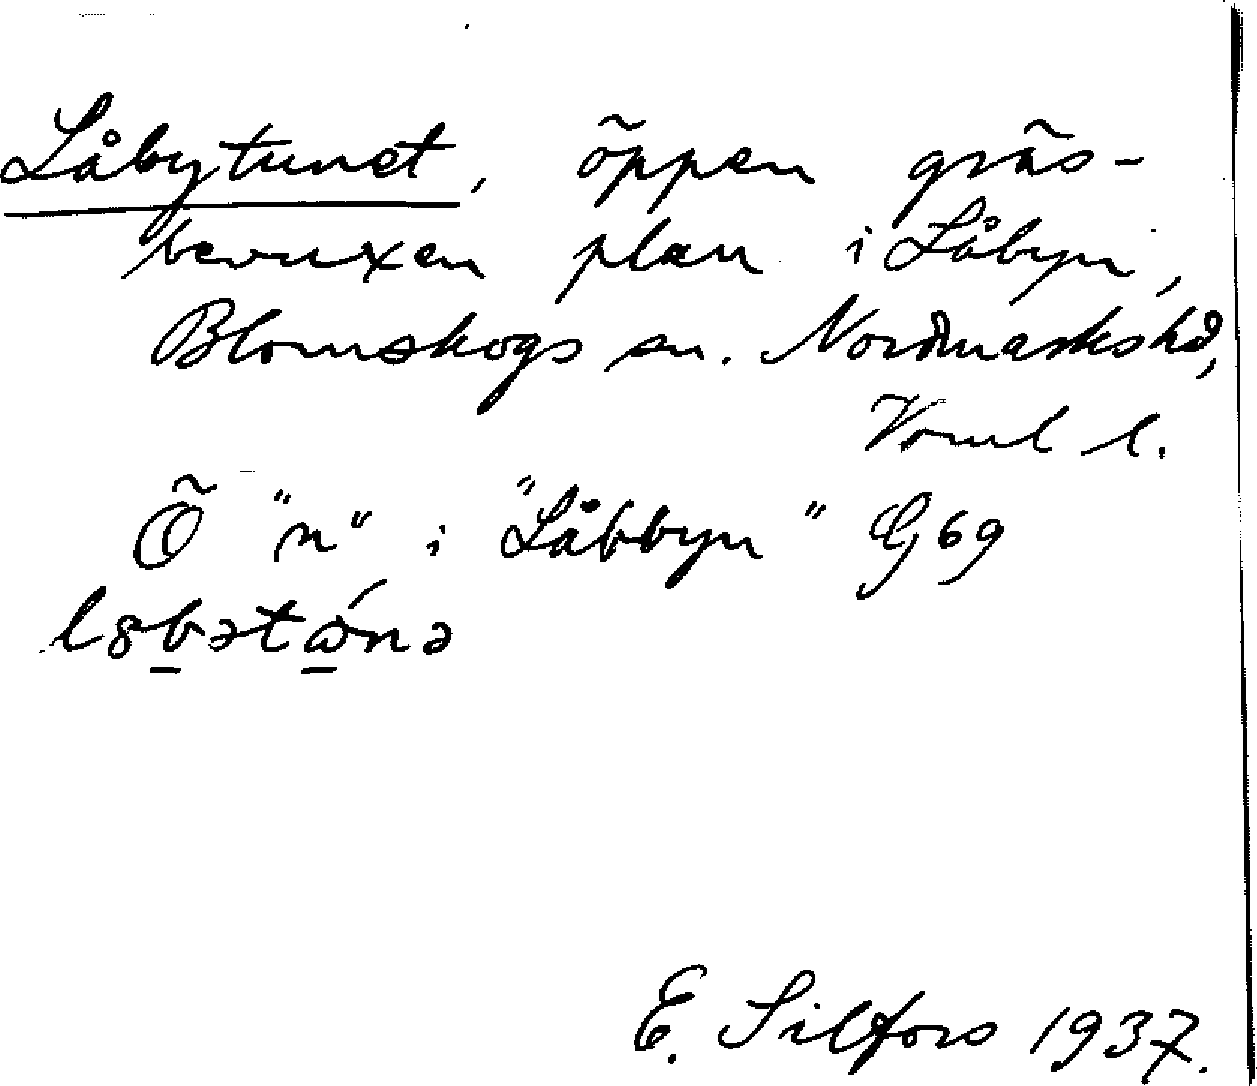 Låbytunet, öppen gräs-
bevuxen plan i Låbyn,
Blomskogs sn. Nordmarkshd,
Verml l.
Ö "n" i "Låbbyn" G69
l8b̲ətώ̲nə
E. Silfors 1937.